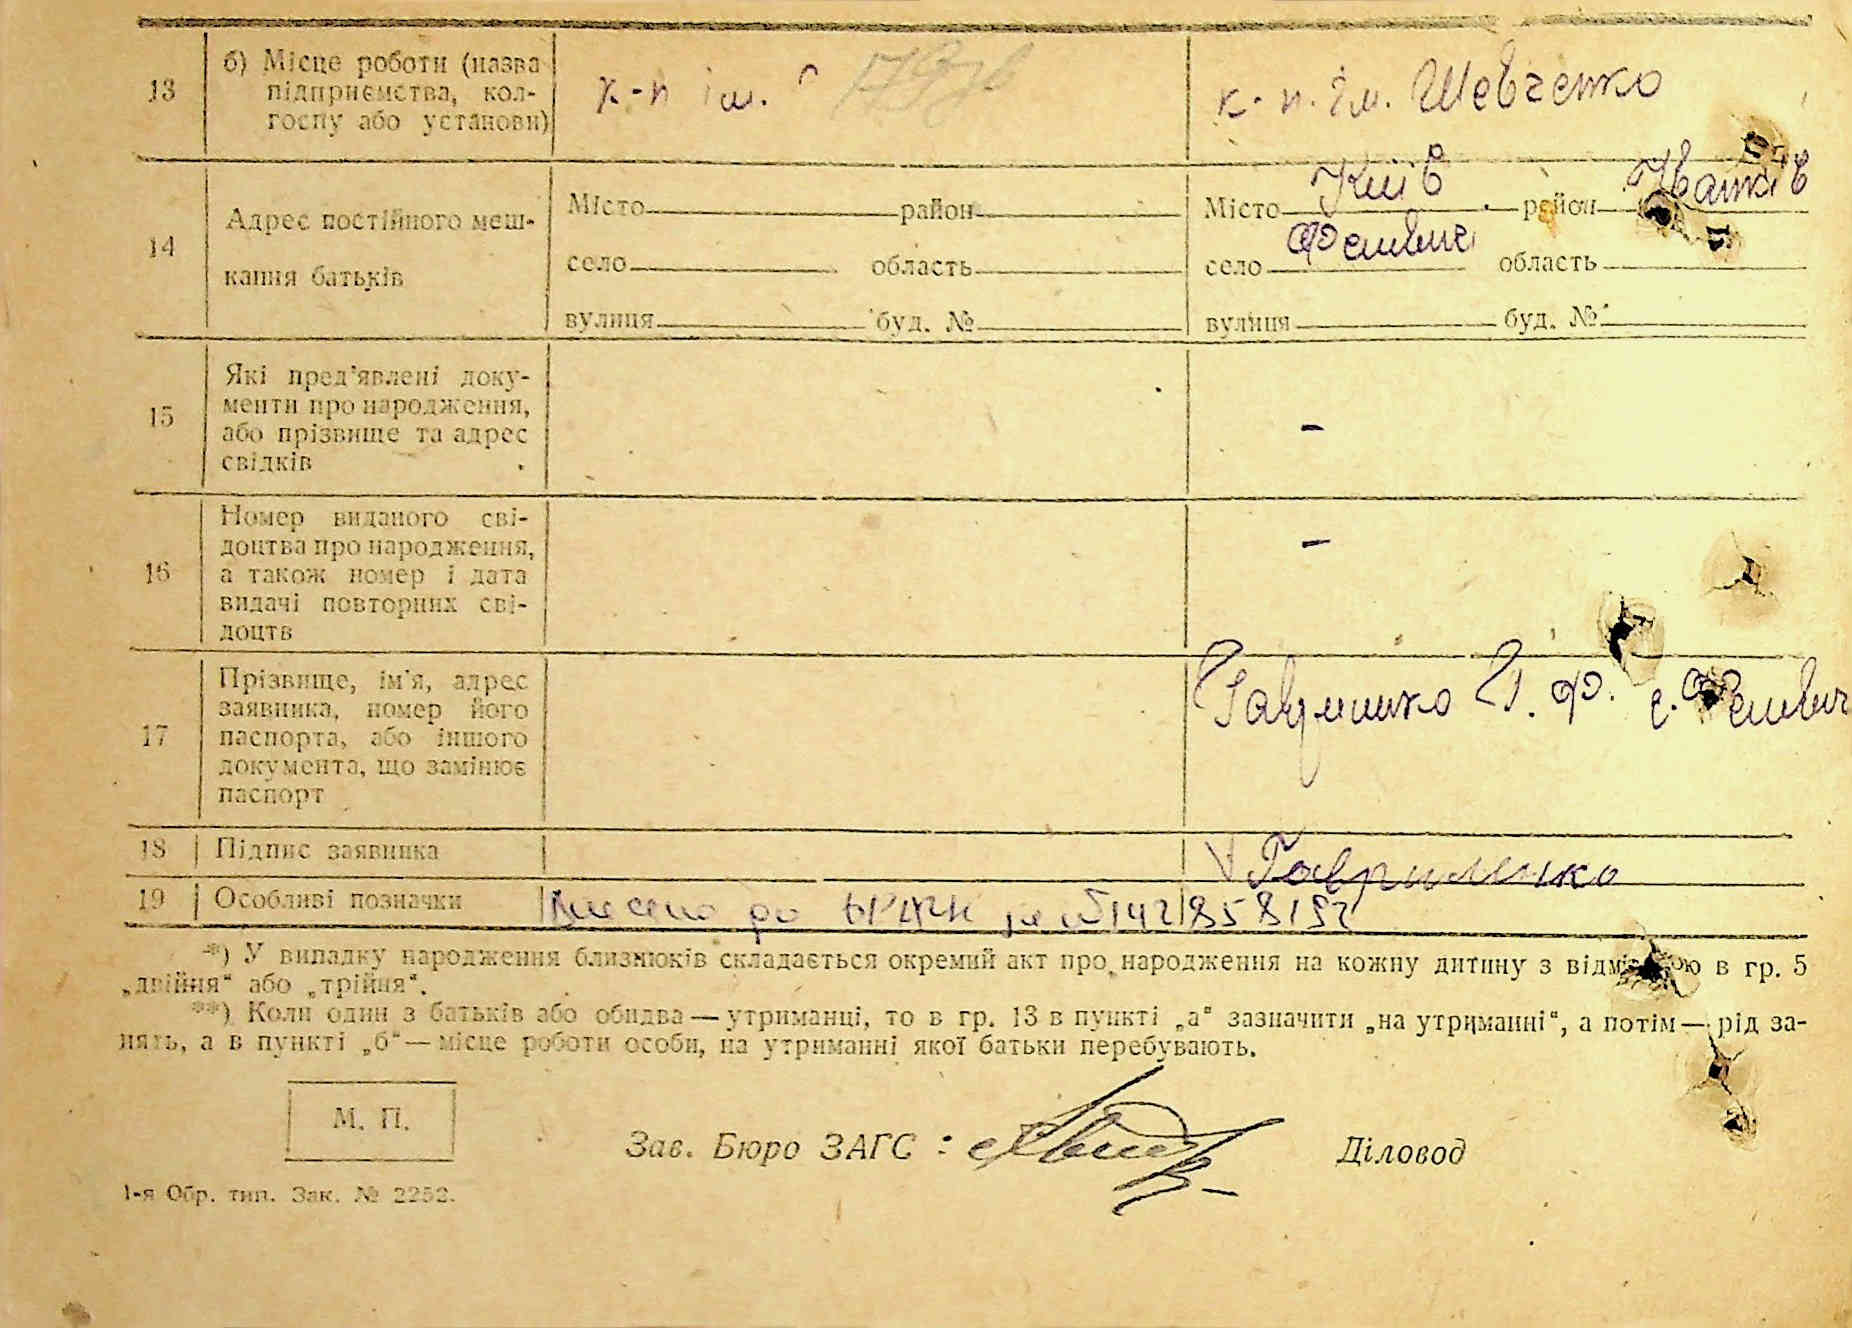 13 б) Місце роботи (назва
підприємства, кол-
госпу або установи)
к-п ім.
к-п. ім. Шевченко
14 Адрес постійного меш-
кання батьків
Місто район
село область
вулиця буд. №
Місто Київ район Іванків
село Феневичі область
вулиця буд. №
15 Які пред'явлені доку-
менти про народження,
або прізвище та адрес
свідків
–
16 Номер виданого сві-
доцтва про народження,
а також номер і дата
видачі повторних сві-
доцтв
–
17 Прізвище, ім'я, адрес
заявника, номер його
паспорта, або іншого
документа, що замінює
паспорт
Гавриленко Г. Ф. с. Феневичі
18 Підпис заявника
Гавриленко
19 Особливі позначки
Внесено до
*) У випадку народження близнюків складається окремий акт про народження на кожну дитину з відміткою в гр. 5
„двійня“ або „трійня“.
**) Коли один з батьків або обидва — утриманці, то в гр. 13 в пункті „а“ зазначити „на утриманні“, а потім — рід за-
нять, а в пункті „б“ — місце роботи особи, на утриманні якої батьки перебувають.
М. П.
Зав. Бюро ЗАГС :
Діловод
1-я Обр. тип. Зак. № 2252.